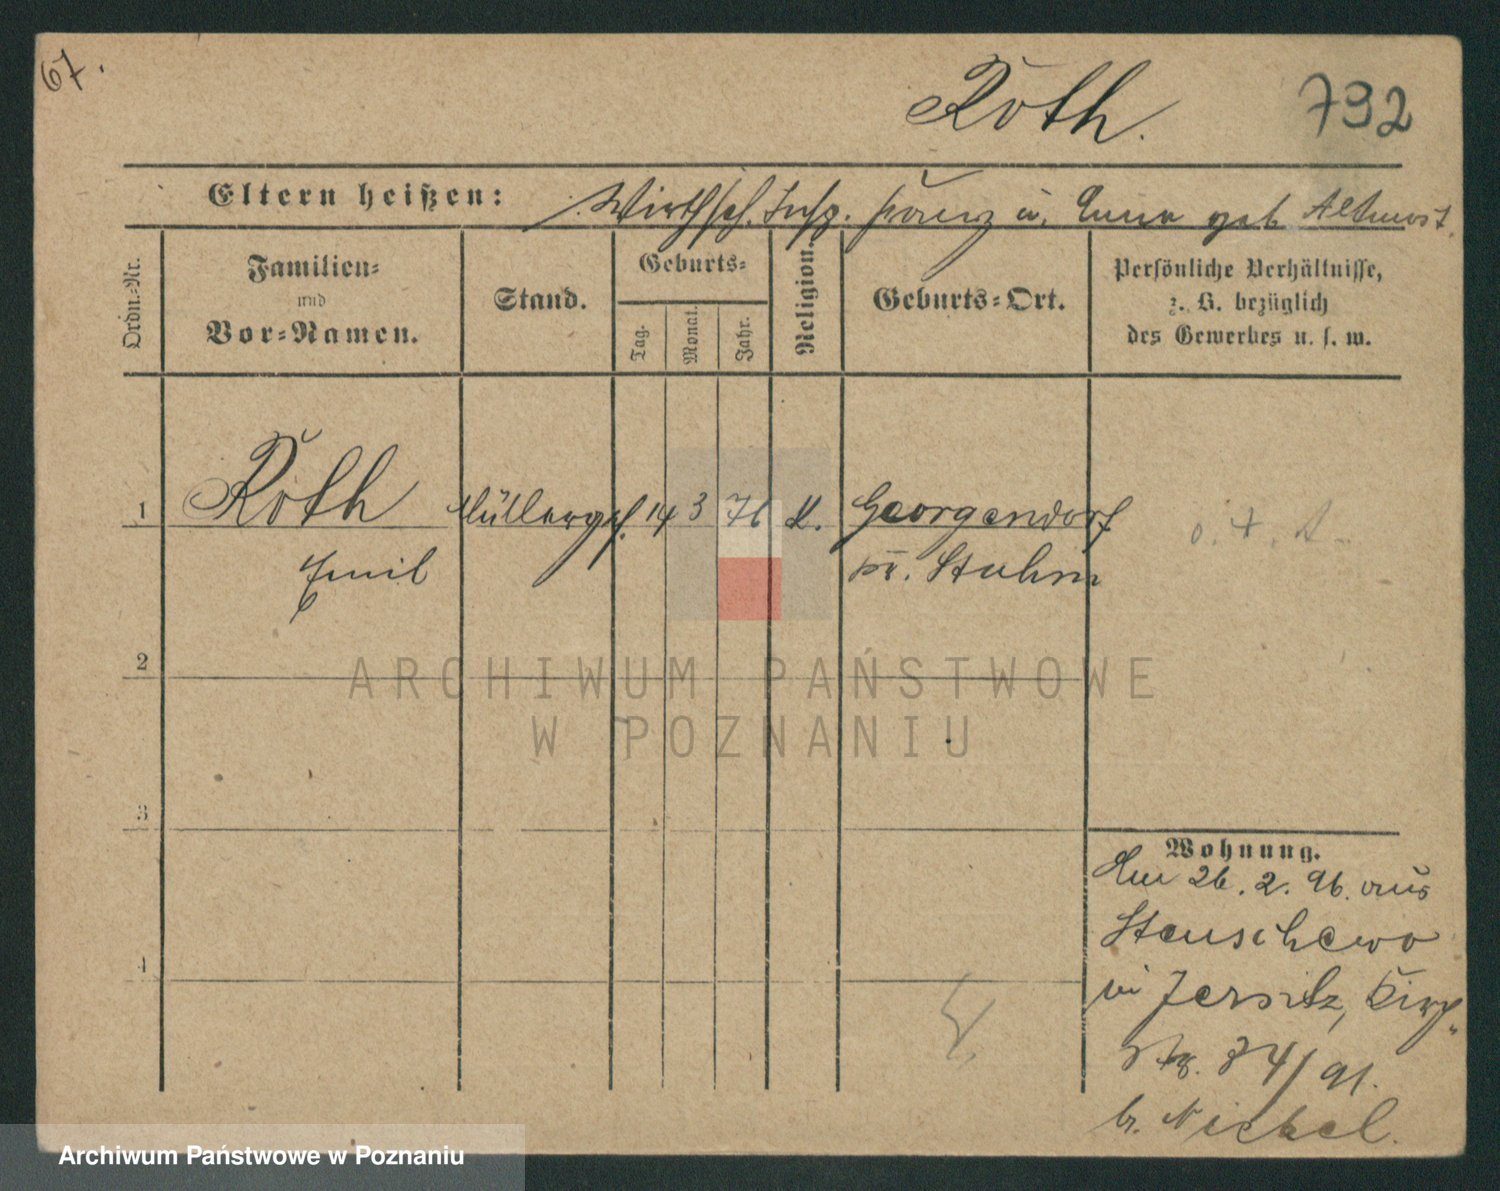 67.
Roth.
792
Eltern heißen: Wirthsch. Insp. Franz u. Anna geb Altmost
Ordn.-Nr.
Familien-
und
Vor-Namen.
Stand.
Geburts-
Tag.
Monat.
Jahr.
Religion.
Geburts-Ort.
Persönliche Verhältnisse,
z. B. bezüglich
des Gewerbes u. s. w.
1 Roth Müllerges. 14 3 76 k. Georgendorf
Emil Kr. Stuhm
2
3
4
Wohnung.
Am 26. 2. 96. aus
Stenschewo
in Jersitz, Kirch-
Str. 34/91.
b. Nickel.
ARCHIWUM PAŃSTWOWE
W POZNANIU
Archiwum Państwowe w Poznaniu